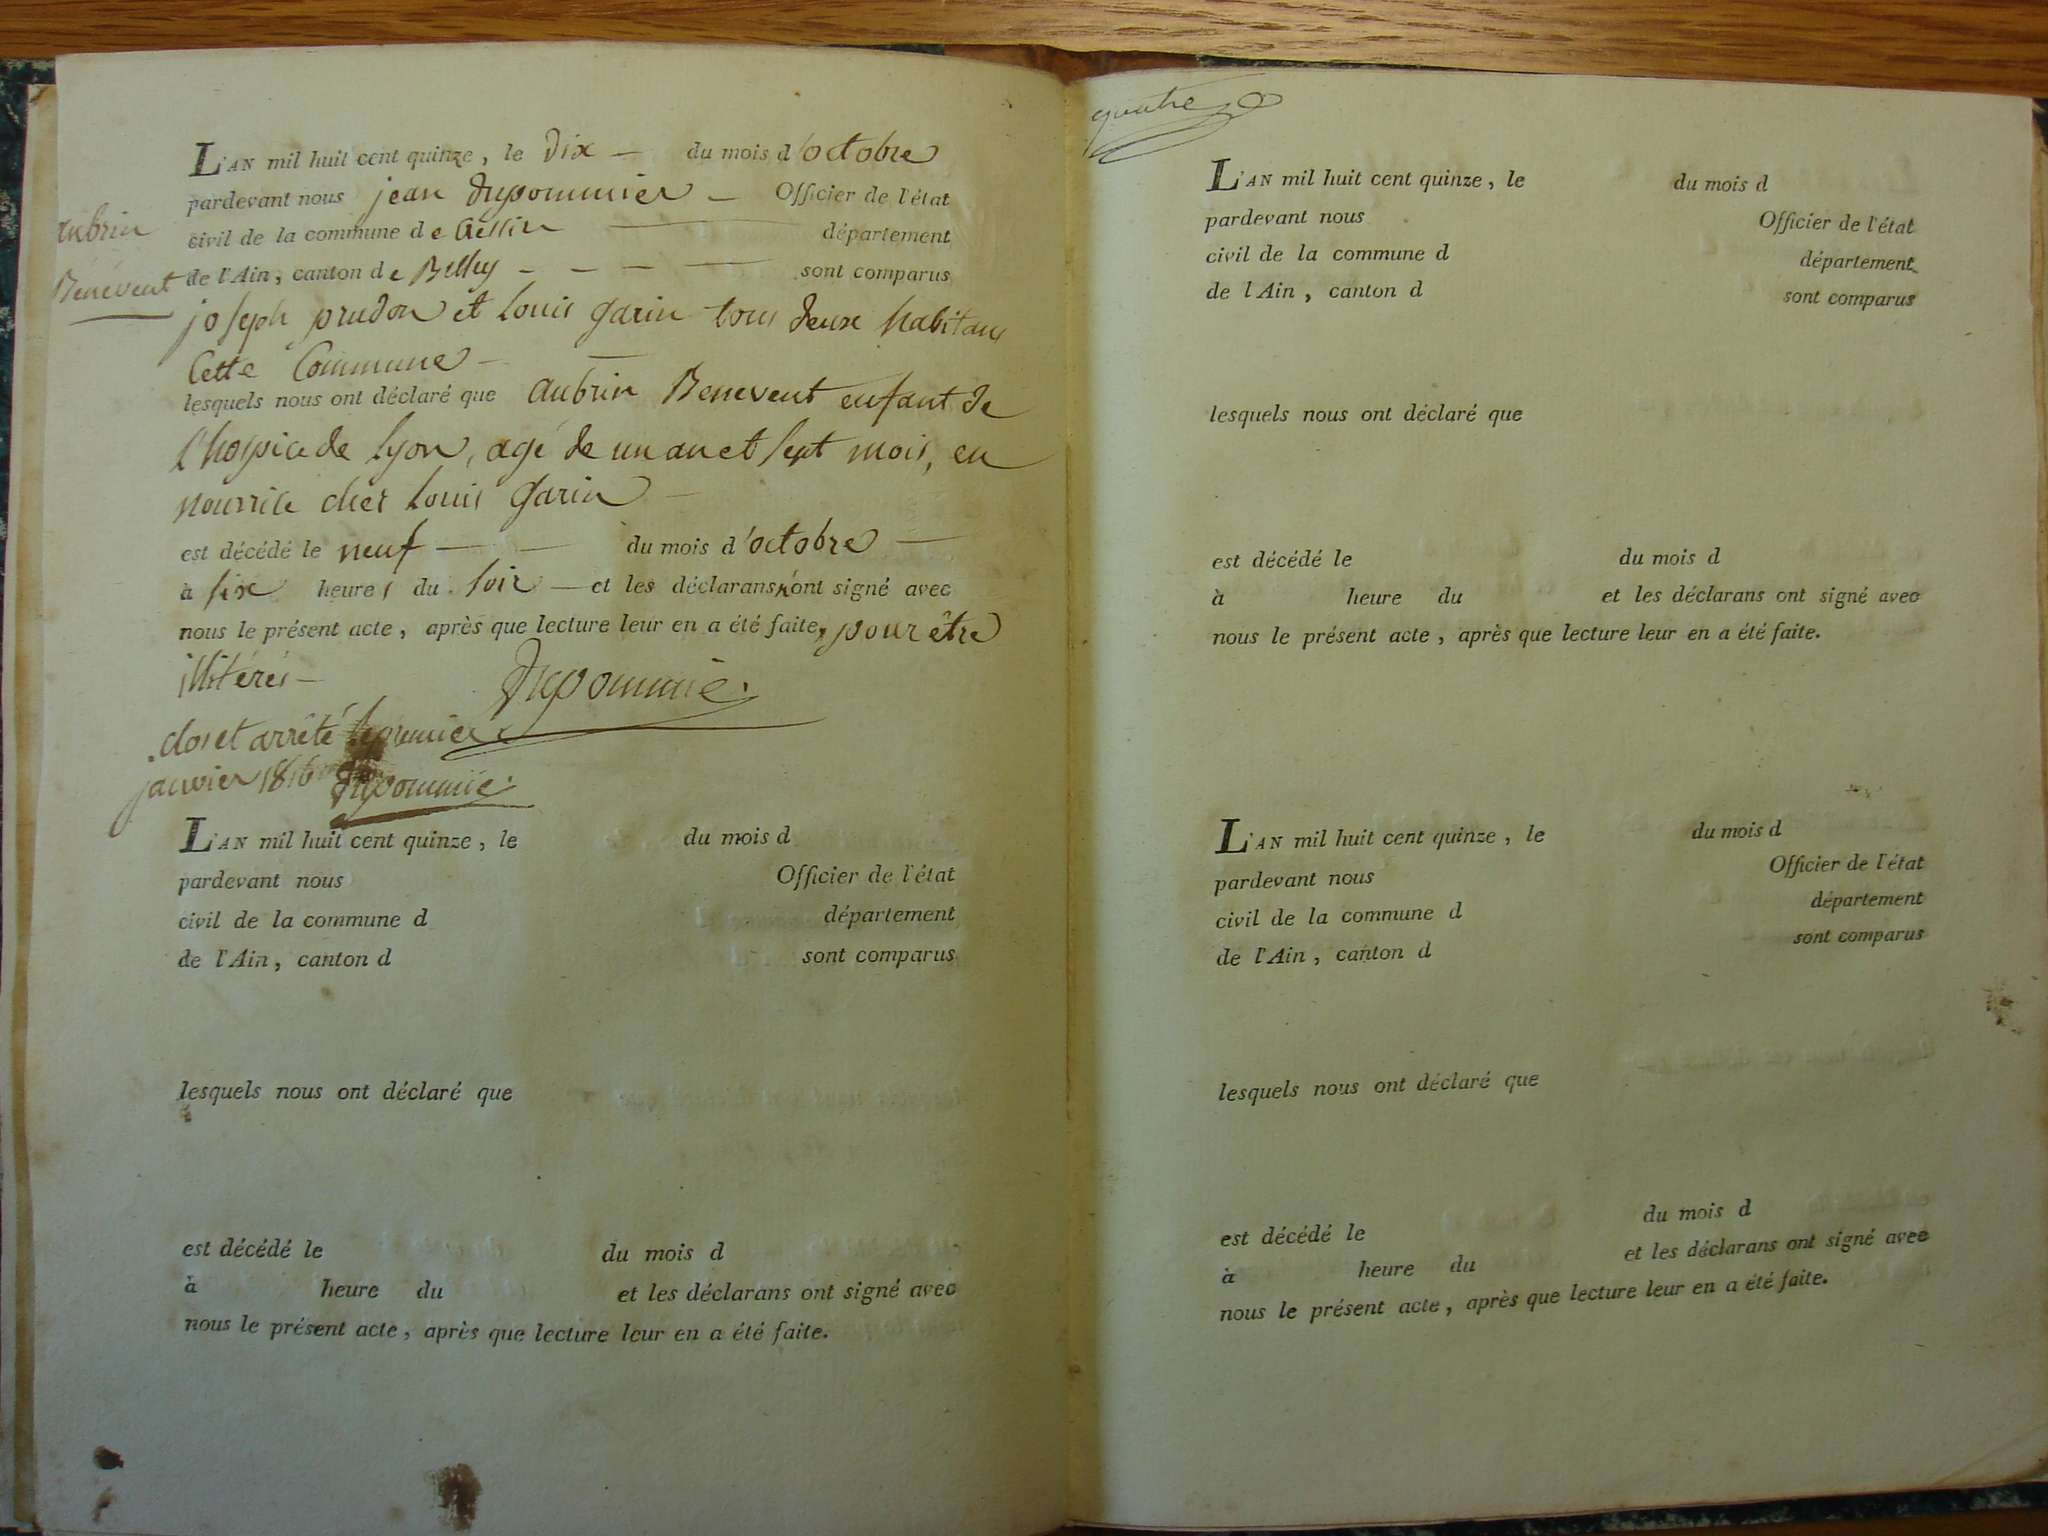 L'AN mil huit cent quinze, le Dix — du mois d'octobre
pardevant nous jean Dupommier — Officier de l'état
civil de la commune de département
de l'Ain, canton de Belley - - - — sont comparus
joseph prudon et Louis garin tous deux habitans
Cette Commune —
lesquels nous ont déclaré que aubrin Benevent enfant de
l'hospice de lyon, agé de un an et sept mois, en
nourrice chez Louis garin —
est décédé le neuf — — du mois d'octobre —
à six heures du soir — et les déclarans n'ont signé avec
nous le présent acte, après que lecture leur en a été faite, pour être
illitérés —
Dupommié.
clos et arrêté le premier
janvier 1816 Dupommié.
aubrin
Bénévent
L'AN mil huit cent quinze, le du mois d
pardevant nous Officier de l'état
civil de la commune d département
de l'Ain, canton d sont comparus
lesquels nous ont déclaré que
est décédé le du mois d
à heure du et les déclarans ont signé avec
nous le présent acte, après que lecture leur en a été faite.
quatre
L'AN mil huit cent quinze, le du mois d
pardevant nous Officier de l'état
civil de la commune d département
de l'Ain, canton d sont comparus
lesquels nous ont déclaré que
est décédé le du mois d
à heure du et les déclarans ont signé avec
nous le présent acte, après que lecture leur en a été faite.
L'AN mil huit cent quinze, le du mois d
pardevant nous Officier de l'état
civil de la commune d département
de l'Ain, canton d sont comparus
lesquels nous ont déclaré que
est décédé le du mois d
à heure du et les déclarans ont signé avec
nous le présent acte, après que lecture leur en a été faite.